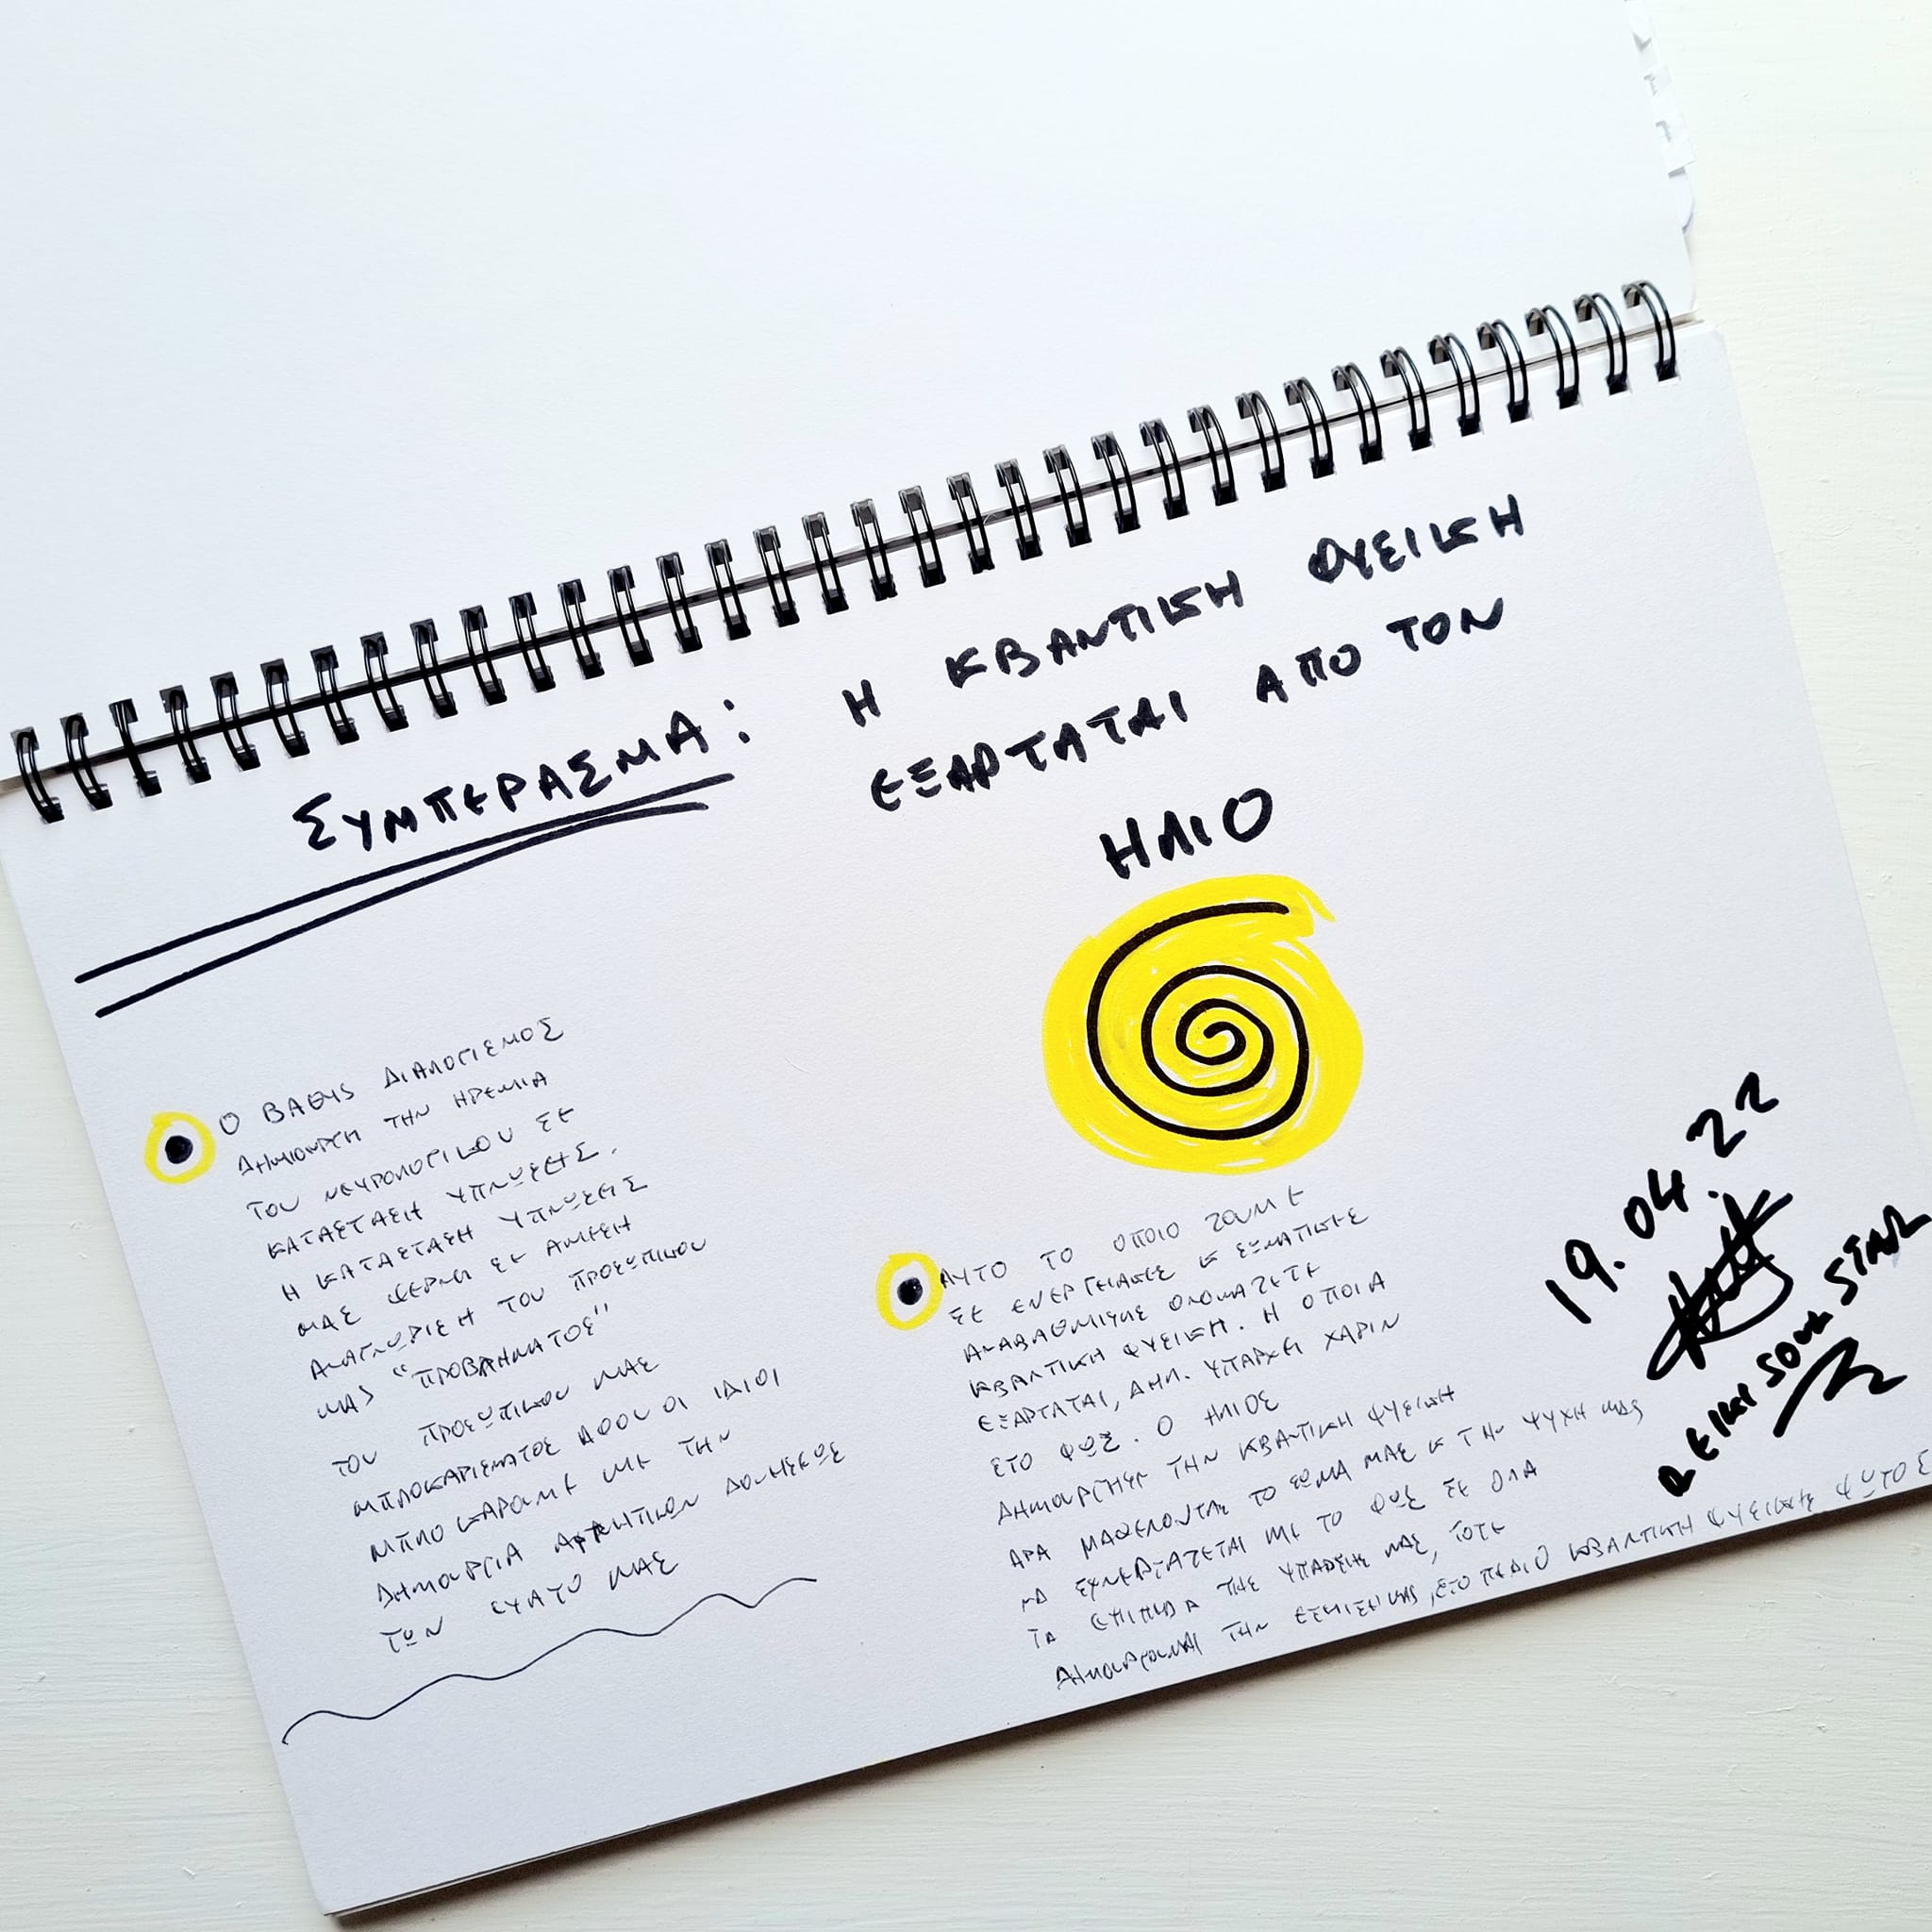 ΣΥΜΠΕΡΑΣΜΑ: Η ΚΒΑΝΤΙΚΗ ΦΥΣΙΚΗ
ΕΞΑΡΤΑΤΑΙ ΑΠΟ ΤΟΝ
ΗΛΙΟ
Ο ΒΑΘΥΣ ΔΙΑΛΟΓΙΣΜΟΣ
ΔΗΜΙΟΥΡΓΗ ΤΗΝ ΗΡΕΜΙΑ
ΤΟΥ ΝΕΥΡΟΛΟΓΙΚΟΥ ΣΕ
ΚΑΤΑΣΤΑΣΗ ΥΠΝΩΣΗΣ.
Η ΚΑΤΑΣΤΑΣΗ ΥΠΝΩΣΗΣ
ΜΑΣ ΦΕΡΝΗ ΣΕ ΑΜΕΣΗ
ΑΝΑΓΝΩΡΙΣΗ ΤΟΥ ΠΡΟΣΩΠΙΚΟΥ
ΜΑΣ "ΠΡΟΒΛΗΜΑΤΟΣ"
ΤΟΥ ΠΡΟΣΩΠΙΚΟΥ ΜΑΣ
ΜΠΛΟΚΑΡΙΣΜΑΤΟΣ ΑΦΟΥ ΟΙ ΙΔΙΟΙ
ΜΠΛΟΚΑΡΟΥΜΕ ΜΕ ΤΗΝ
ΔΗΜΙΟΥΡΓΙΑ ΑΡΝΗΤΙΚΩΝ ΔΟΝΗΣΕΩΣ
ΤΩΝ ΕΥΑΤΟ ΜΑΣ
ΑΥΤΟ ΤΟ ΟΠΟΙΟ ΖΟΥΜΕ
ΣΕ ΕΝΕΡΓΕΙΑΚΕΣ Κ ΣΩΜΑΤΙΚΕΣ
ΑΝΑΒΑΘΜΙΣΗΣ ΟΝΟΜΑΖΕΤΕ
ΚΒΑΝΤΙΚΗ ΦΥΣΙΚΗ. Η ΟΠΟΙΑ
ΕΞΑΡΤΑΤΑΙ, ΔΗΛ. ΥΠΑΡΧΕΙ ΧΑΡΙΝ
ΣΤΟ ΦΩΣ. Ο ΗΛΙΟΣ
ΔΗΜΙΟΥΡΓΗΣΕ ΤΗΝ ΚΒΑΝΤΙΚΗ ΦΥΣΙΚΗ
ΑΡΑ ΜΑΘΕΝΟΝΤΑΣ ΤΟ ΣΩΜΑ ΜΑΣ Κ ΤΗΝ ΨΥΧΗ ΜΑΣ
ΝΑ ΣΥΝΕΡΓΑΖΕΤΑΙ ΜΕ ΤΟ ΦΩΣ ΣΕ ΟΛΑ
ΤΑ ΕΠΙΠΕΔΑ ΤΗΣ ΥΠΑΡΞΗΣ ΜΑΣ, ΤΟΤΕ
ΔΗΜΙΟΥΡΓΟΥΜΑΙ ΤΗΝ ΕΞΕΛΙΞΗ ΜΑΣ, ΣΤΟ ΠΕΔΙΟ ΚΒΑΝΤΙΚΗ ΦΥΣΙΚΗΣ ΦΩΤΟΣ
19.04.22
REIKI SOUL STAR